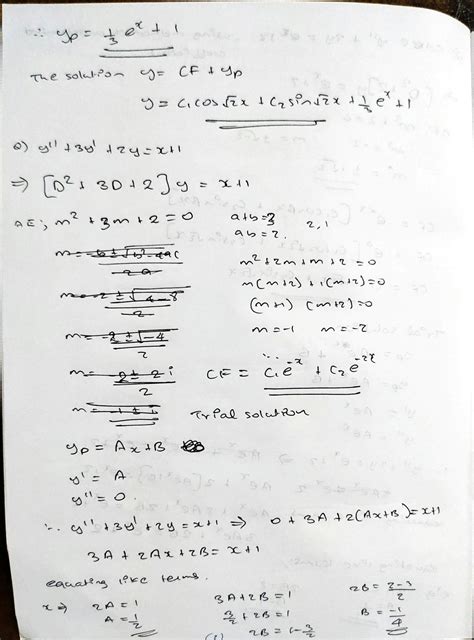 ∴ yp = 1/3 e^x + 1
The solution y = CF + yp
y = C1cos√2x + C2sin√2x + 1/3 e^x + 1
y'' + 3y' + 2y = x+1
⇒ [D² + 3D + 2] y = x+1
AE; m² + 3m + 2 = 0
a+b=3
ab=2.
2,1
m = -b ± √b²-4ac / 2a
m² + 2m + m + 2 = 0
m(m+2) + 1(m+2) = 0
m = -2 ± √4-8 / 2
(m+1) (m+2) = 0
m = -2 ± √-4 / 2
m = -1 m = -2
m = -2 ± 2i / 2
∴ CF = C1e^-x + C2e^-2x
m = -1 ± i
Trial solution
yp = Ax+B
y' = A
y'' = 0
∴ y'' + 3y' + 2y = x+1 ⇒ 0 + 3A + 2(Ax+B) = x+1
3A + 2Ax + 2B = x+1
equating like terms.
x ⇒ 2A = 1
A = 1/2
3A + 2B = 1
3/2 + 2B = 1
2B = 1 - 3/2
2B = 2-3/2
B = -1/4